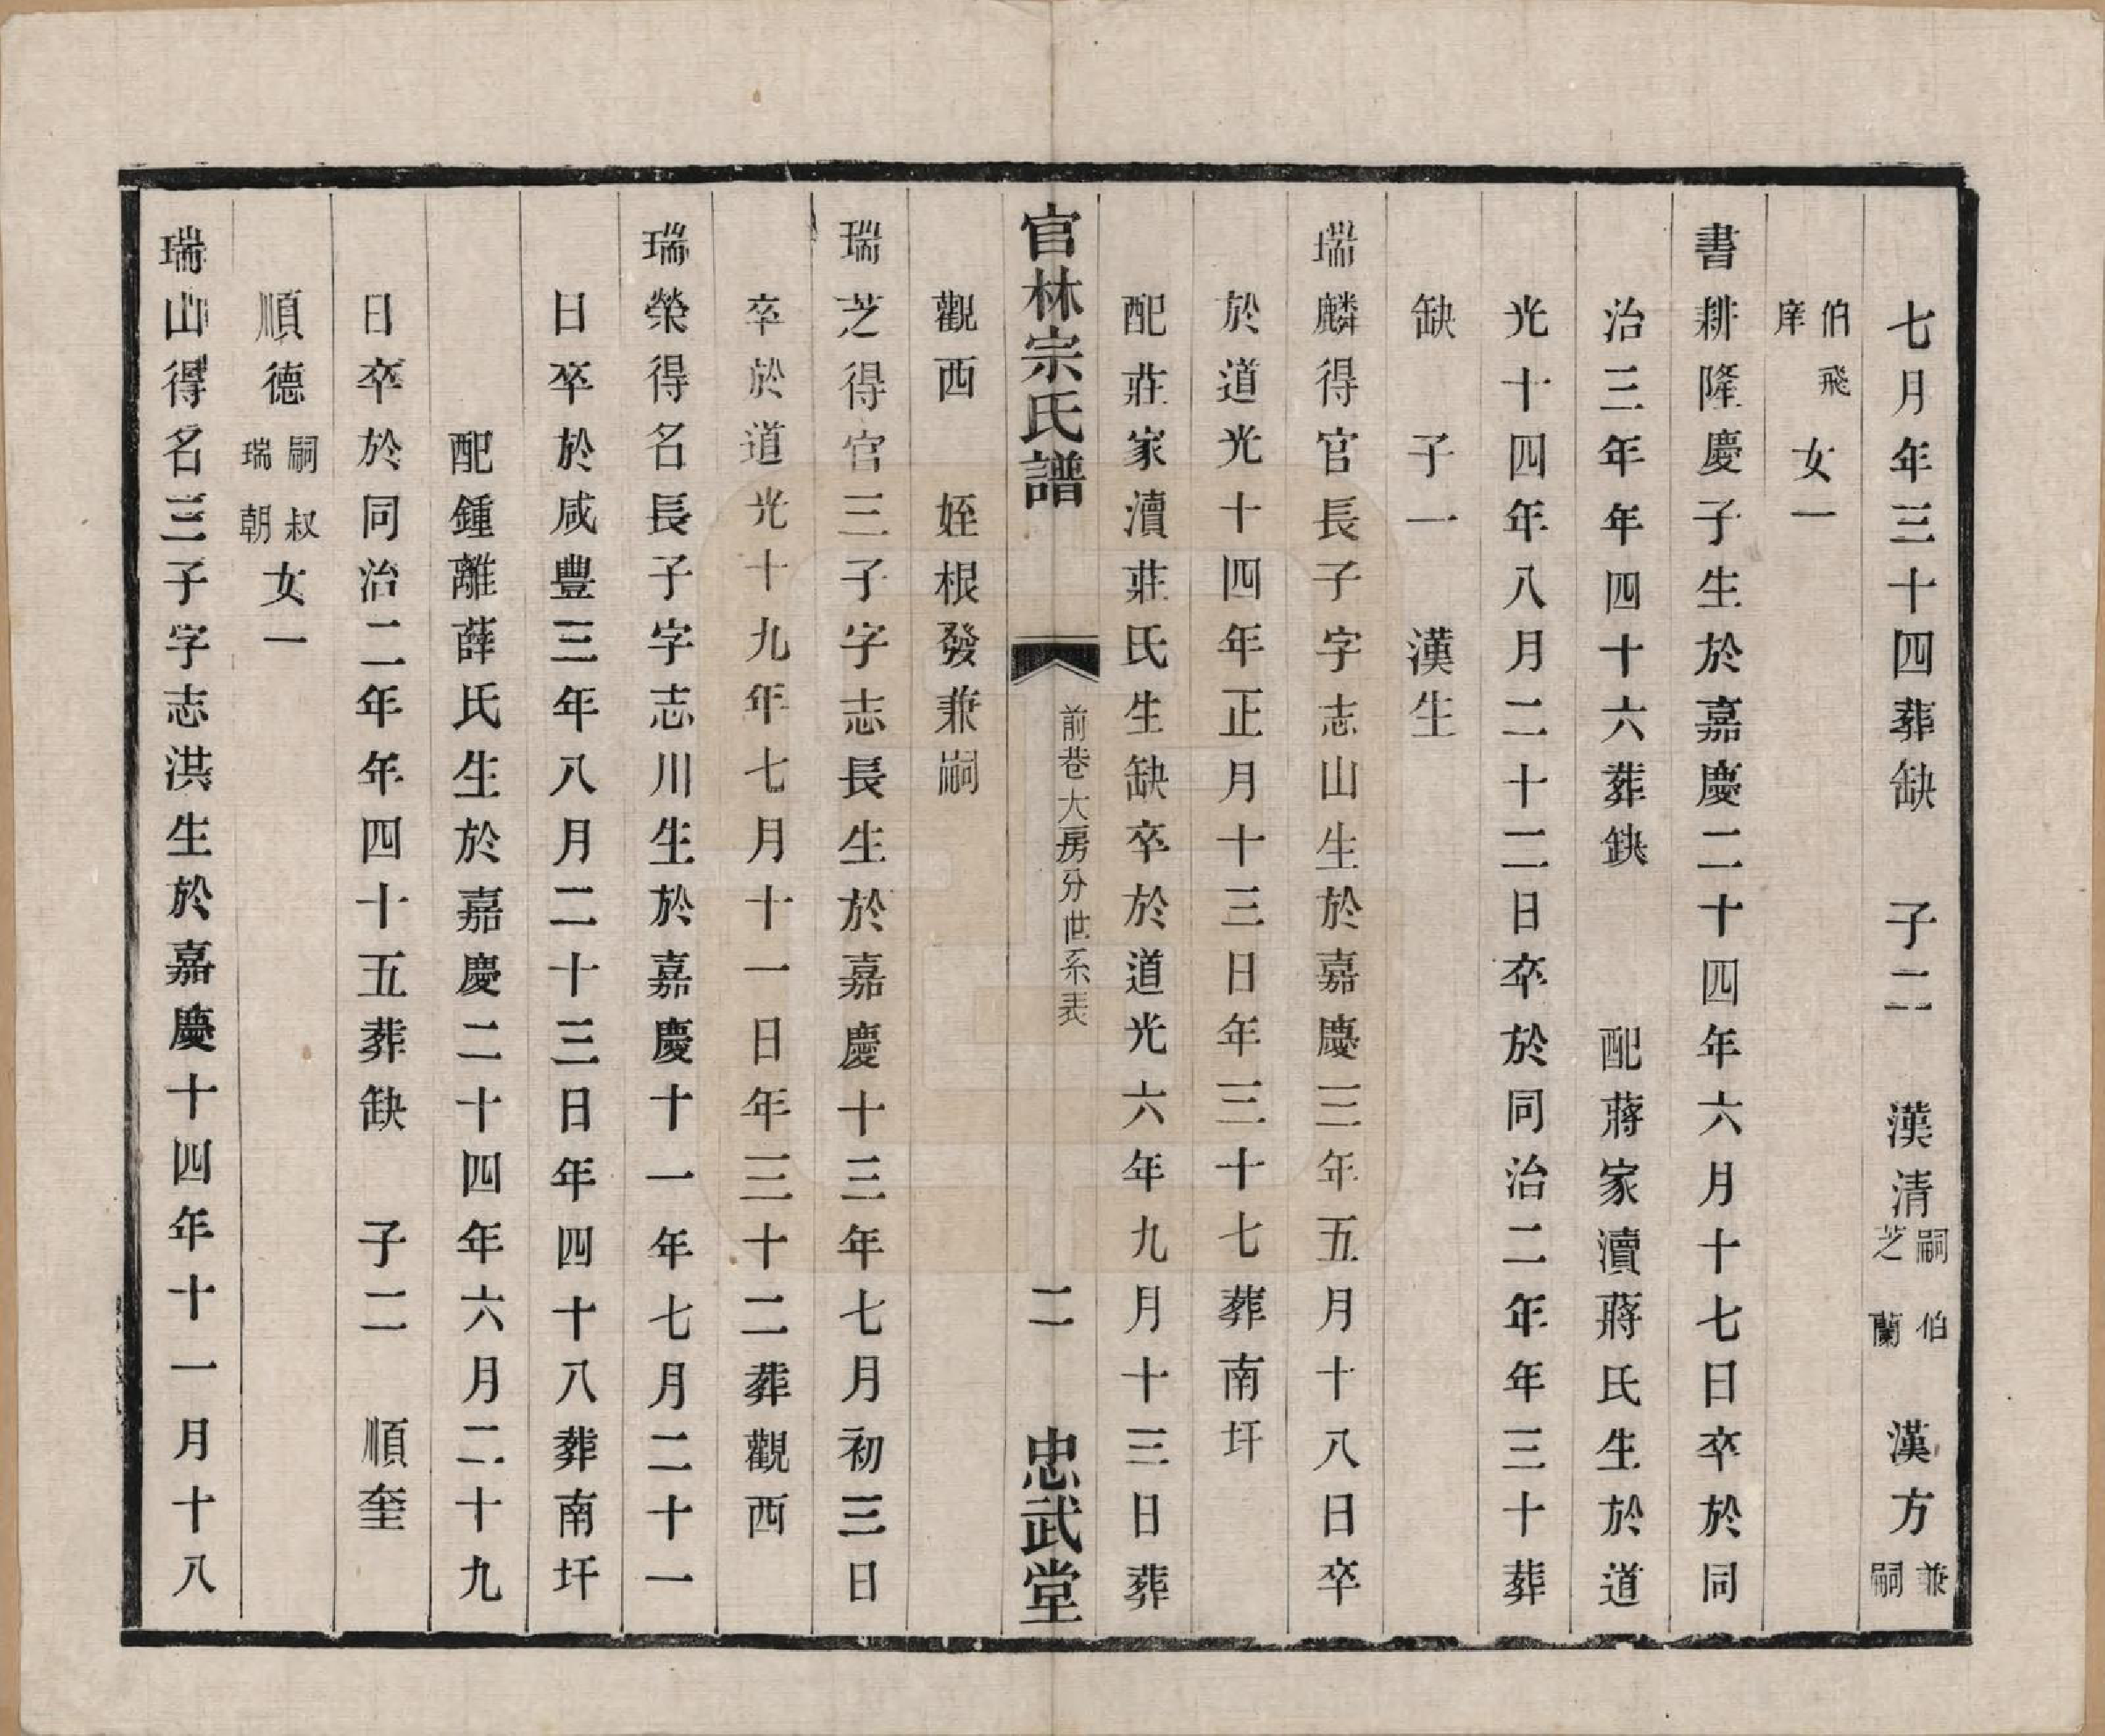 七月年三十四葬缺　子二　漢清嗣伯芝蘭　漢方兼嗣
伯飛庠　女一
書耕隆慶子生於嘉慶二十四年六月十七日卒於同
治三年年四十六葬缺　配蔣家瀆蔣氏生於道
光十四年八月二十二日卒於同治二年年三十葬
缺　子一　漢生
瑞麟得官長子字志山生於嘉慶三年五月十八日卒
於道光十四年正月十三日年三十七葬南圩
配莊家瀆莊氏生缺卒於道光六年九月十三日葬
官林宗氏譜　前巷大房分世系表　二　忠武堂
觀西　姪根發兼嗣
瑞芝得官三子字志長生於嘉慶十三年七月初三日
卒於道光十九年七月十一日年三十二葬觀西
瑞榮得名長子字志川生於嘉慶十一年七月二十一
日卒於咸豐三年八月二十三日年四十八葬南圩
配鍾離薛氏生於嘉慶二十四年六月二十九
日卒於同治二年年四十五葬缺　子二　順奎
順德嗣叔瑞朝　女一
瑞山得名三子字志洪生於嘉慶十四年十一月十八